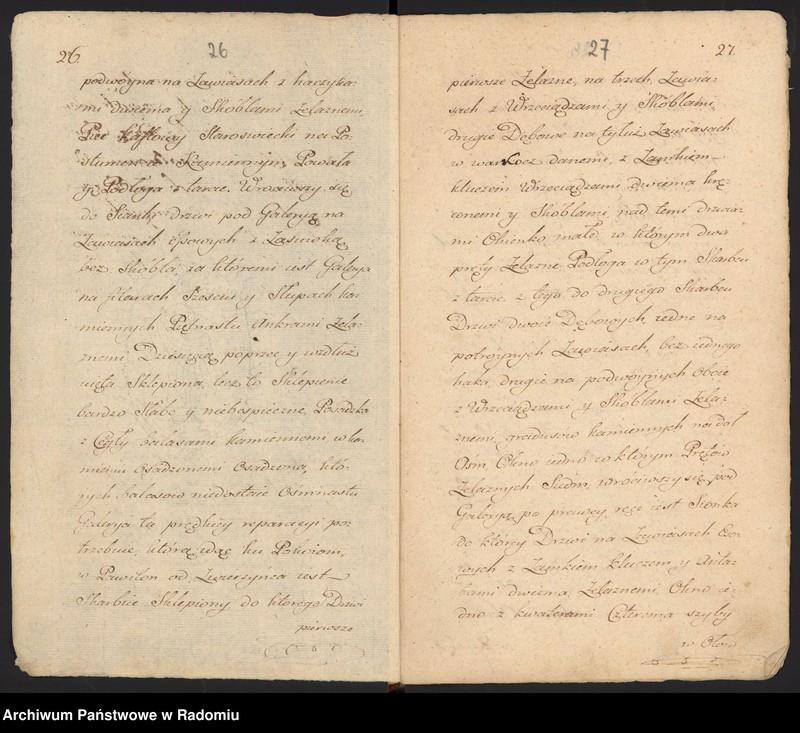 26. 26
podwoyna na Zawiasach z haczyka-
mi dwiema y Skoblami Zelaznemi,
Piec kaflowy Staroswiecki na Po-
stumencie Kamiennym, Powała
y Podłoga z tarcic. Wrociwszy się
do Sionki, drzwi pod Galeryą na
Zawiasach essowych z Zasuwką
bez Skobla, za ktoremi iest Galerya
na filarach Szesciu y Słupach ka-
miennych Piętnastu Ankrami Zela-
znemi Dziesięcią poprzek y wzdłuż
Sklepiona, lecz to Sklepienie
bardzo słabe y niebespieczne, Posadzka
z Cegły balasami kamiennemi w ka-
mieniu osadzonemi Osadzona, któ-
rych balasow niedostaie Ośmnastu
Galerya ta prędkiey reparacyi po-
trzebuie, którą idąc ku Pokoiom,
w Pawilon od Zwierzynca iest
Skarbiec Sklepiony do ktorego Drzwi
pierwsze
27 27.
pierwsze Zelazne, na trzech Zawia-
sach z Wrzeciądzami y Skoblami,
drugie Dębowe na tyluż Zawiasach
w warkocz danemi, z Zamkiem
kluczem Wrzeciądzami dwiema
y Skoblami, nad temi drzwia-
mi Okienko małe, w ktorym dwa
pręty Zelazne, Podłoga w tym Skarbcu
z tarcic. z tego do drugiego Skarbcu
Drzwi dwoie Dębowych, iedne na
potroynych Zawiasach, bez iednego
haka, drugie na podwoynych Oboie
z Wrzeciądzami y Skoblami Zela-
znemi, gradusow kamiennych na doł
Ośm, Okno iedno w ktorym Prętow
Zelaznych Siedm, wróciwszy się pod
Galeryą po prawey ręce iest Sionka
do ktorey Drzwi na Zawiasach Esso-
wych z Zamkiem kluczem y Anta-
bami dwiema, Zelaznemi, Okno ie-
dno z kwaterami Czterema szyby
w Ołow
Archiwum Państwowe w Radomiu